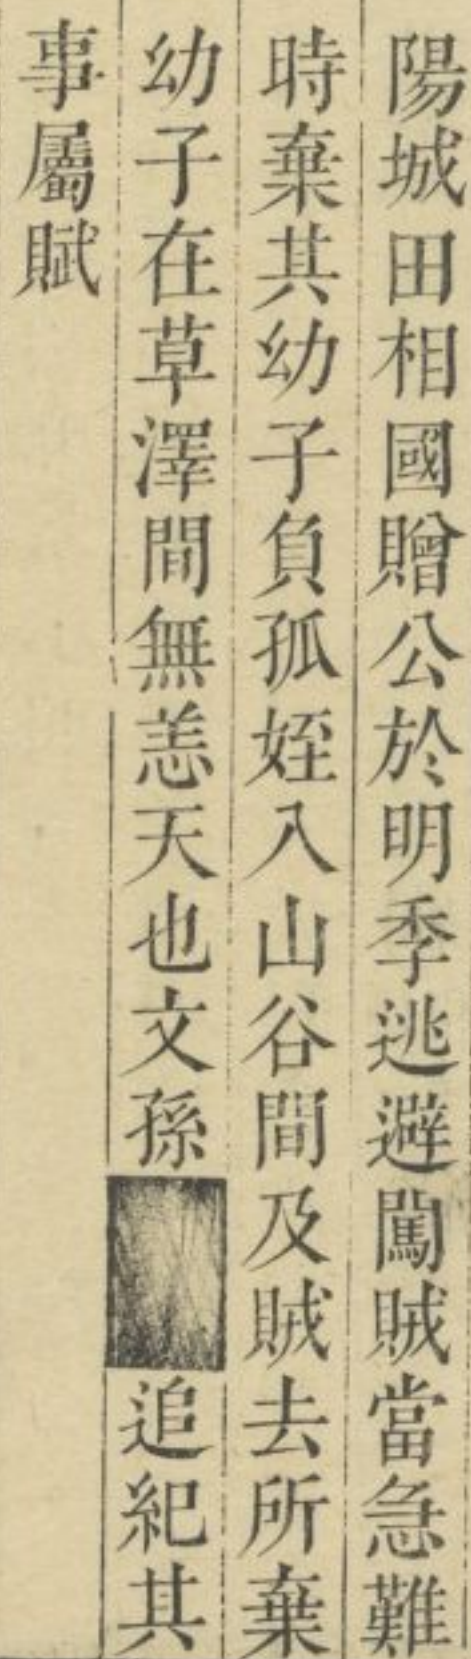 陽城田相國贈公於明季逃避闖賊當急難
時棄其幼子負孤姪入山谷間及賊去所棄
幼子在草澤間無恙天也文孫追紀其
事屬賦